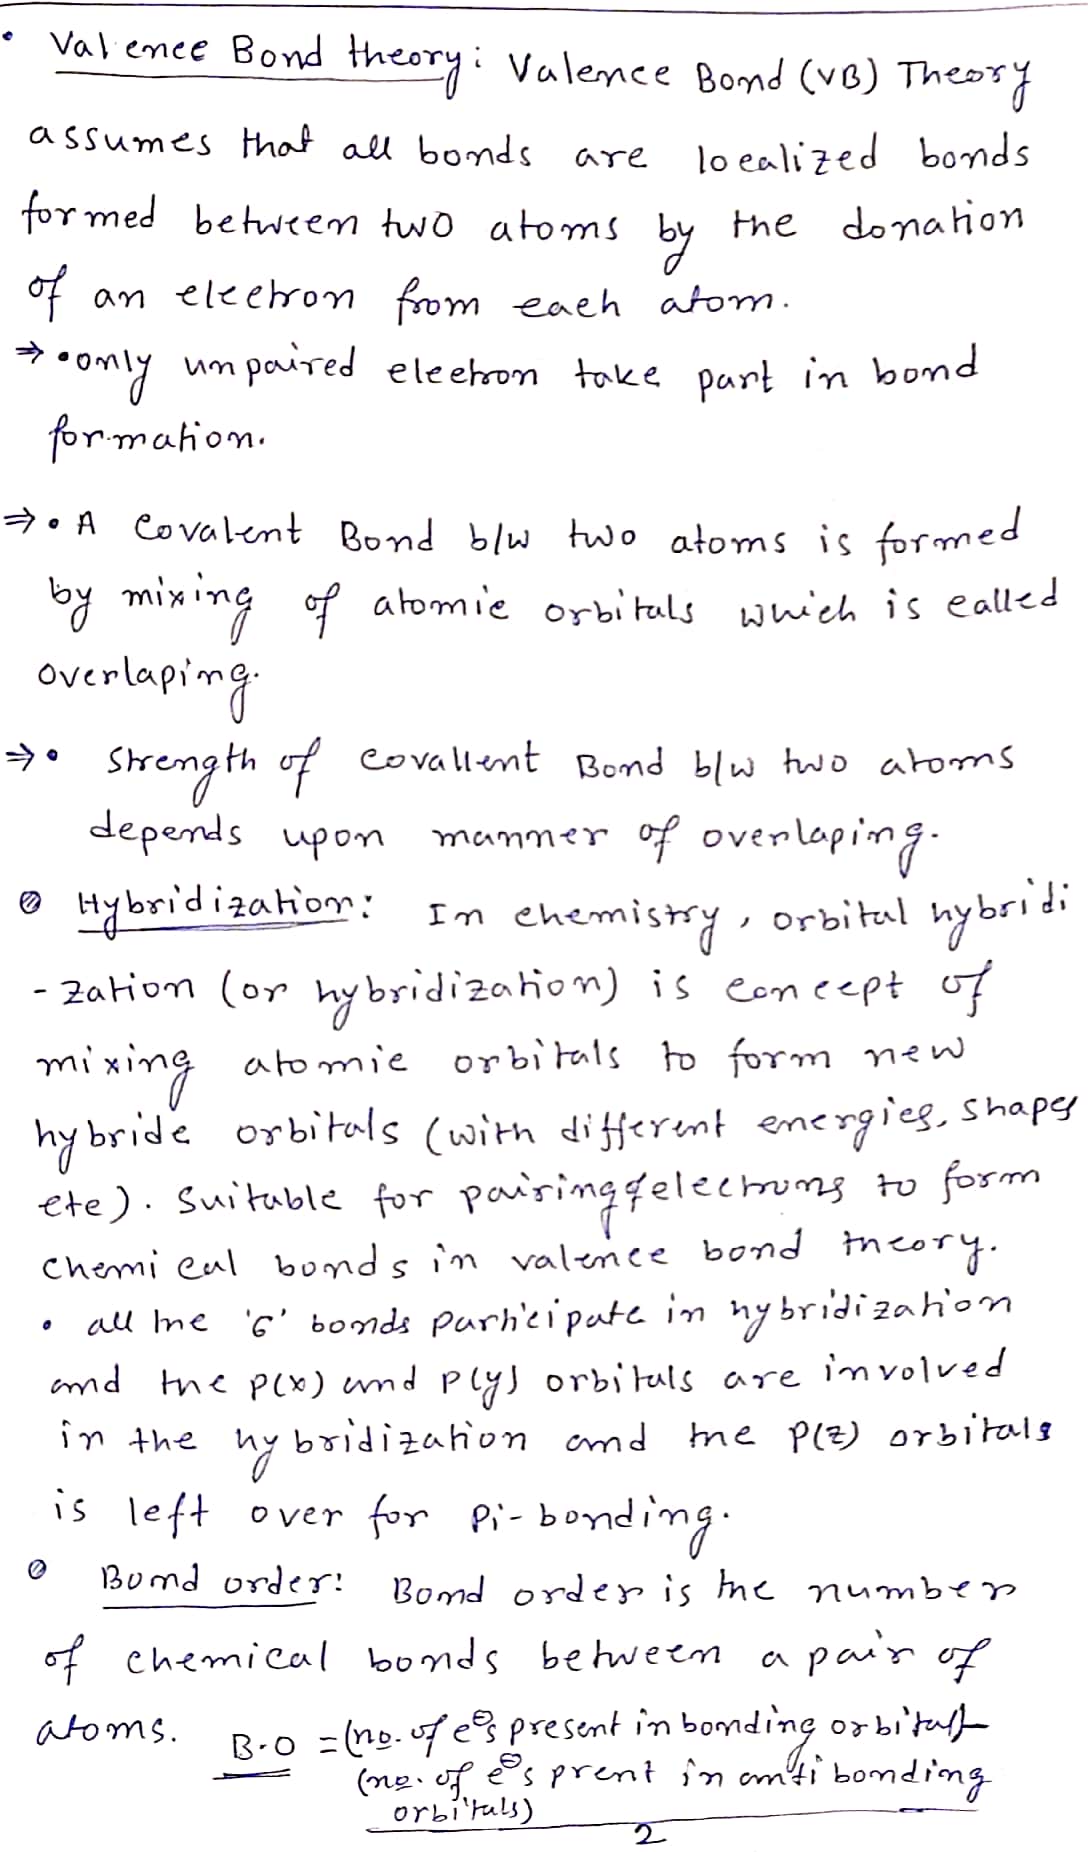 • Valence Bond theory: Valence Bond (VB) Theory
assumes that all bonds are localized bonds
formed between two atoms by the donation
of an electron from each atom.
⇒ • only unpaired electron take part in bond
formation.
⇒ • A Covalent Bond b/w two atoms is formed
by mixing of atomic orbitals which is called
overlaping.
⇒ • Strength of Covallent Bond b/w two atoms
depends upon manner of overlaping.
⊘ Hybridization: In chemistry, orbital hybridi
-zation (or hybridization) is concept of
mixing atomic orbitals to form new
hybride orbitals (with different energies, shapes
etc). Suitable for pairing of electrons to form
chemical bonds in valence bond theory.
• all the 'б' bonds participate in hybridization
and the p(x) and p(y) orbitals are involved
in the hybridization and the P(z) orbitals
is left over for Pi-bonding.
⊘ Bond order: Bond order is the number
of chemical bonds between a pair of
atoms. B.O = (no. of e⊖s present in bonding orbital)-
(no. of e⊖s prent in anti bonding
orbitals)
2